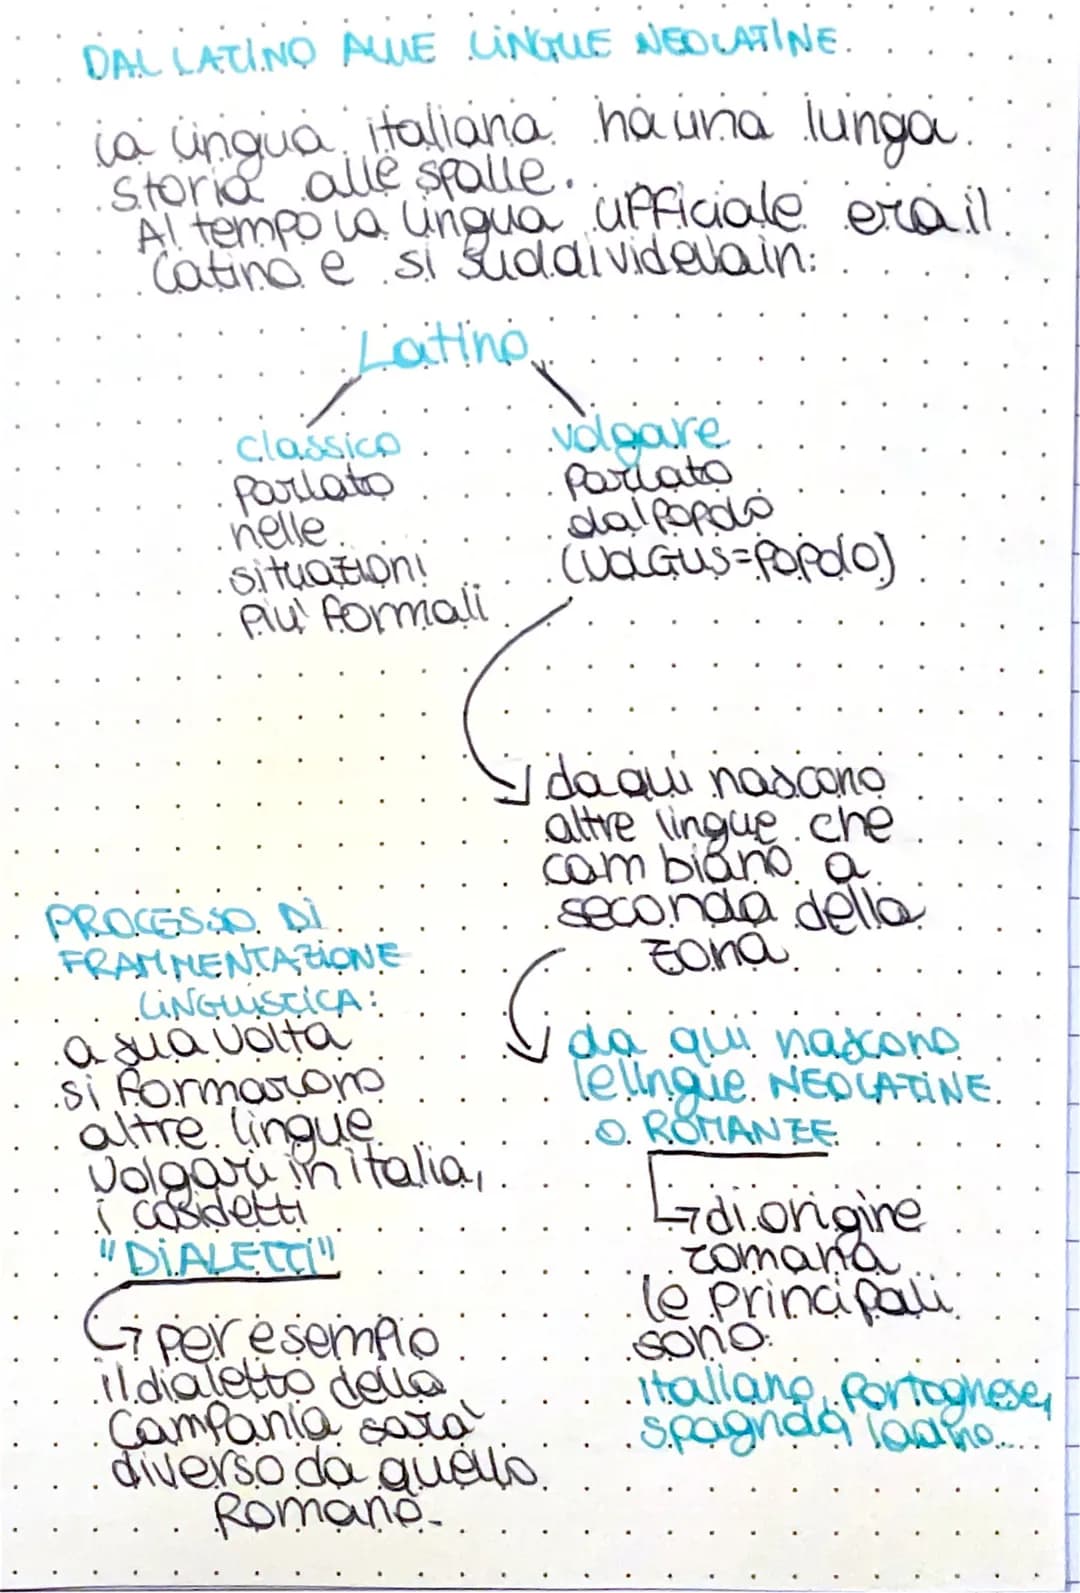 DAL LATINO ALLE LINGUE NEOLATINE.
la lingua italiana ha una lunga
storia alle spalle.
Al tempo la lingua ufficiale era il
latino e si suddivideva in:
Latino
classico
parlato
nelle
situazioni
più formali
volgare
parlato
dal popolo
(VOLGUS=POPOLO)
da qui nascono
altre lingue che
cambiano a
seconda della
zona
da qui nascono
le lingue NEOLATINE
O ROMANZE
di origine
romana
le principali
sono:
italiano, Portoghese,
spagnolo, ladino...
PROCESSO DI
FRAMMENTAZIONE
LINGUISTICA:
a sua volta
si formarono
altre lingue
volgari in italia,
i cosidetti
"DIALETTI"
per esempio
il dialetto della
Campania sarà
diverso da quello
Romano.